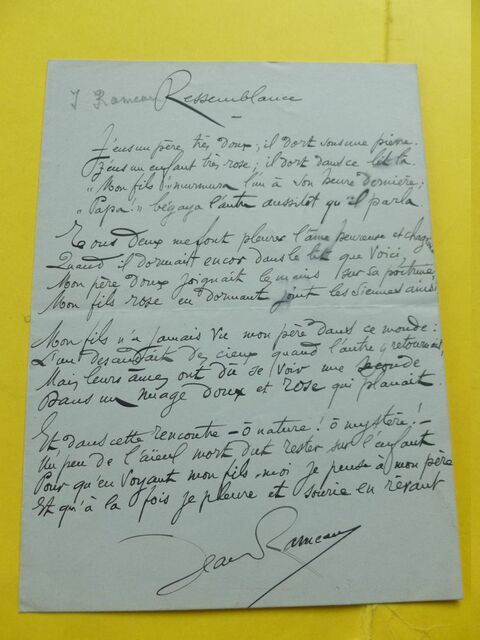 J Rameau Ressemblance
J'eus un père très doux; il dort sous une pierre.
J'eus un enfant très rose; il dort dans ce lit là.
"Mon fils!" murmura l'un à son heure dernière;
"Papa!" bégaya l'autre aussitôt qu'il parla
Tous deux me font pleurer l'âme heureuse et chagrine
Quand il dormait encor dans le lit que voici,
Mon père doux joignait les mains sur sa poitrine
Mon fils rose en dormant joint les siennes ainsi
Mon fils n'a jamais vu mon père dans ce monde:
L'un descendait des cieux quand l'autre y retournait,
Mais leurs âmes ont dû se voir une seconde
Dans un nuage doux et rose qui planait.
Et dans cette rencontre – ô nature! ô mystère! –
Un peu de l'aïeul mort dut rester sur l'enfant
Pour qu'en voyant mon fils, moi je pense à mon père
Et qu'à la fois je pleure et sourie en rêvant
Jean Rameau